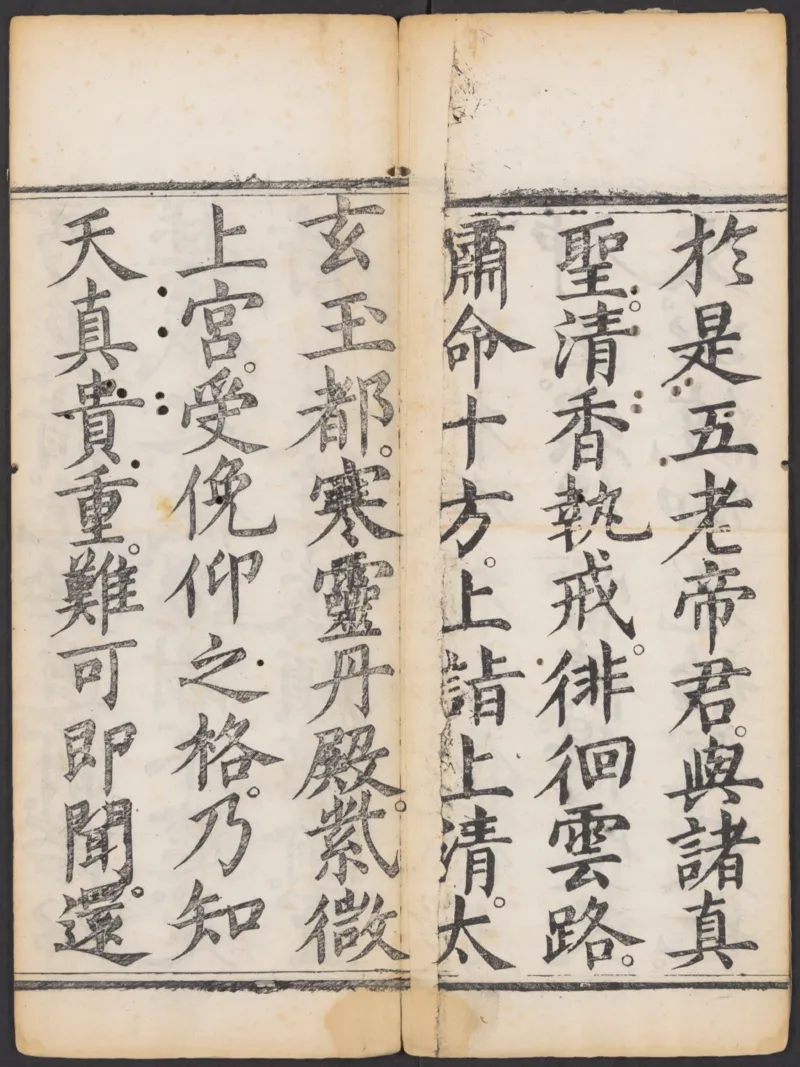 於是五老帝君。與諸真
聖。清香執戒。徘徊雲路。
肅命十方。上詣上清。太
玄玉都。寒靈丹殿。紫微
上宮。受俛仰之格。乃知
天真貴重。難可即聞。還